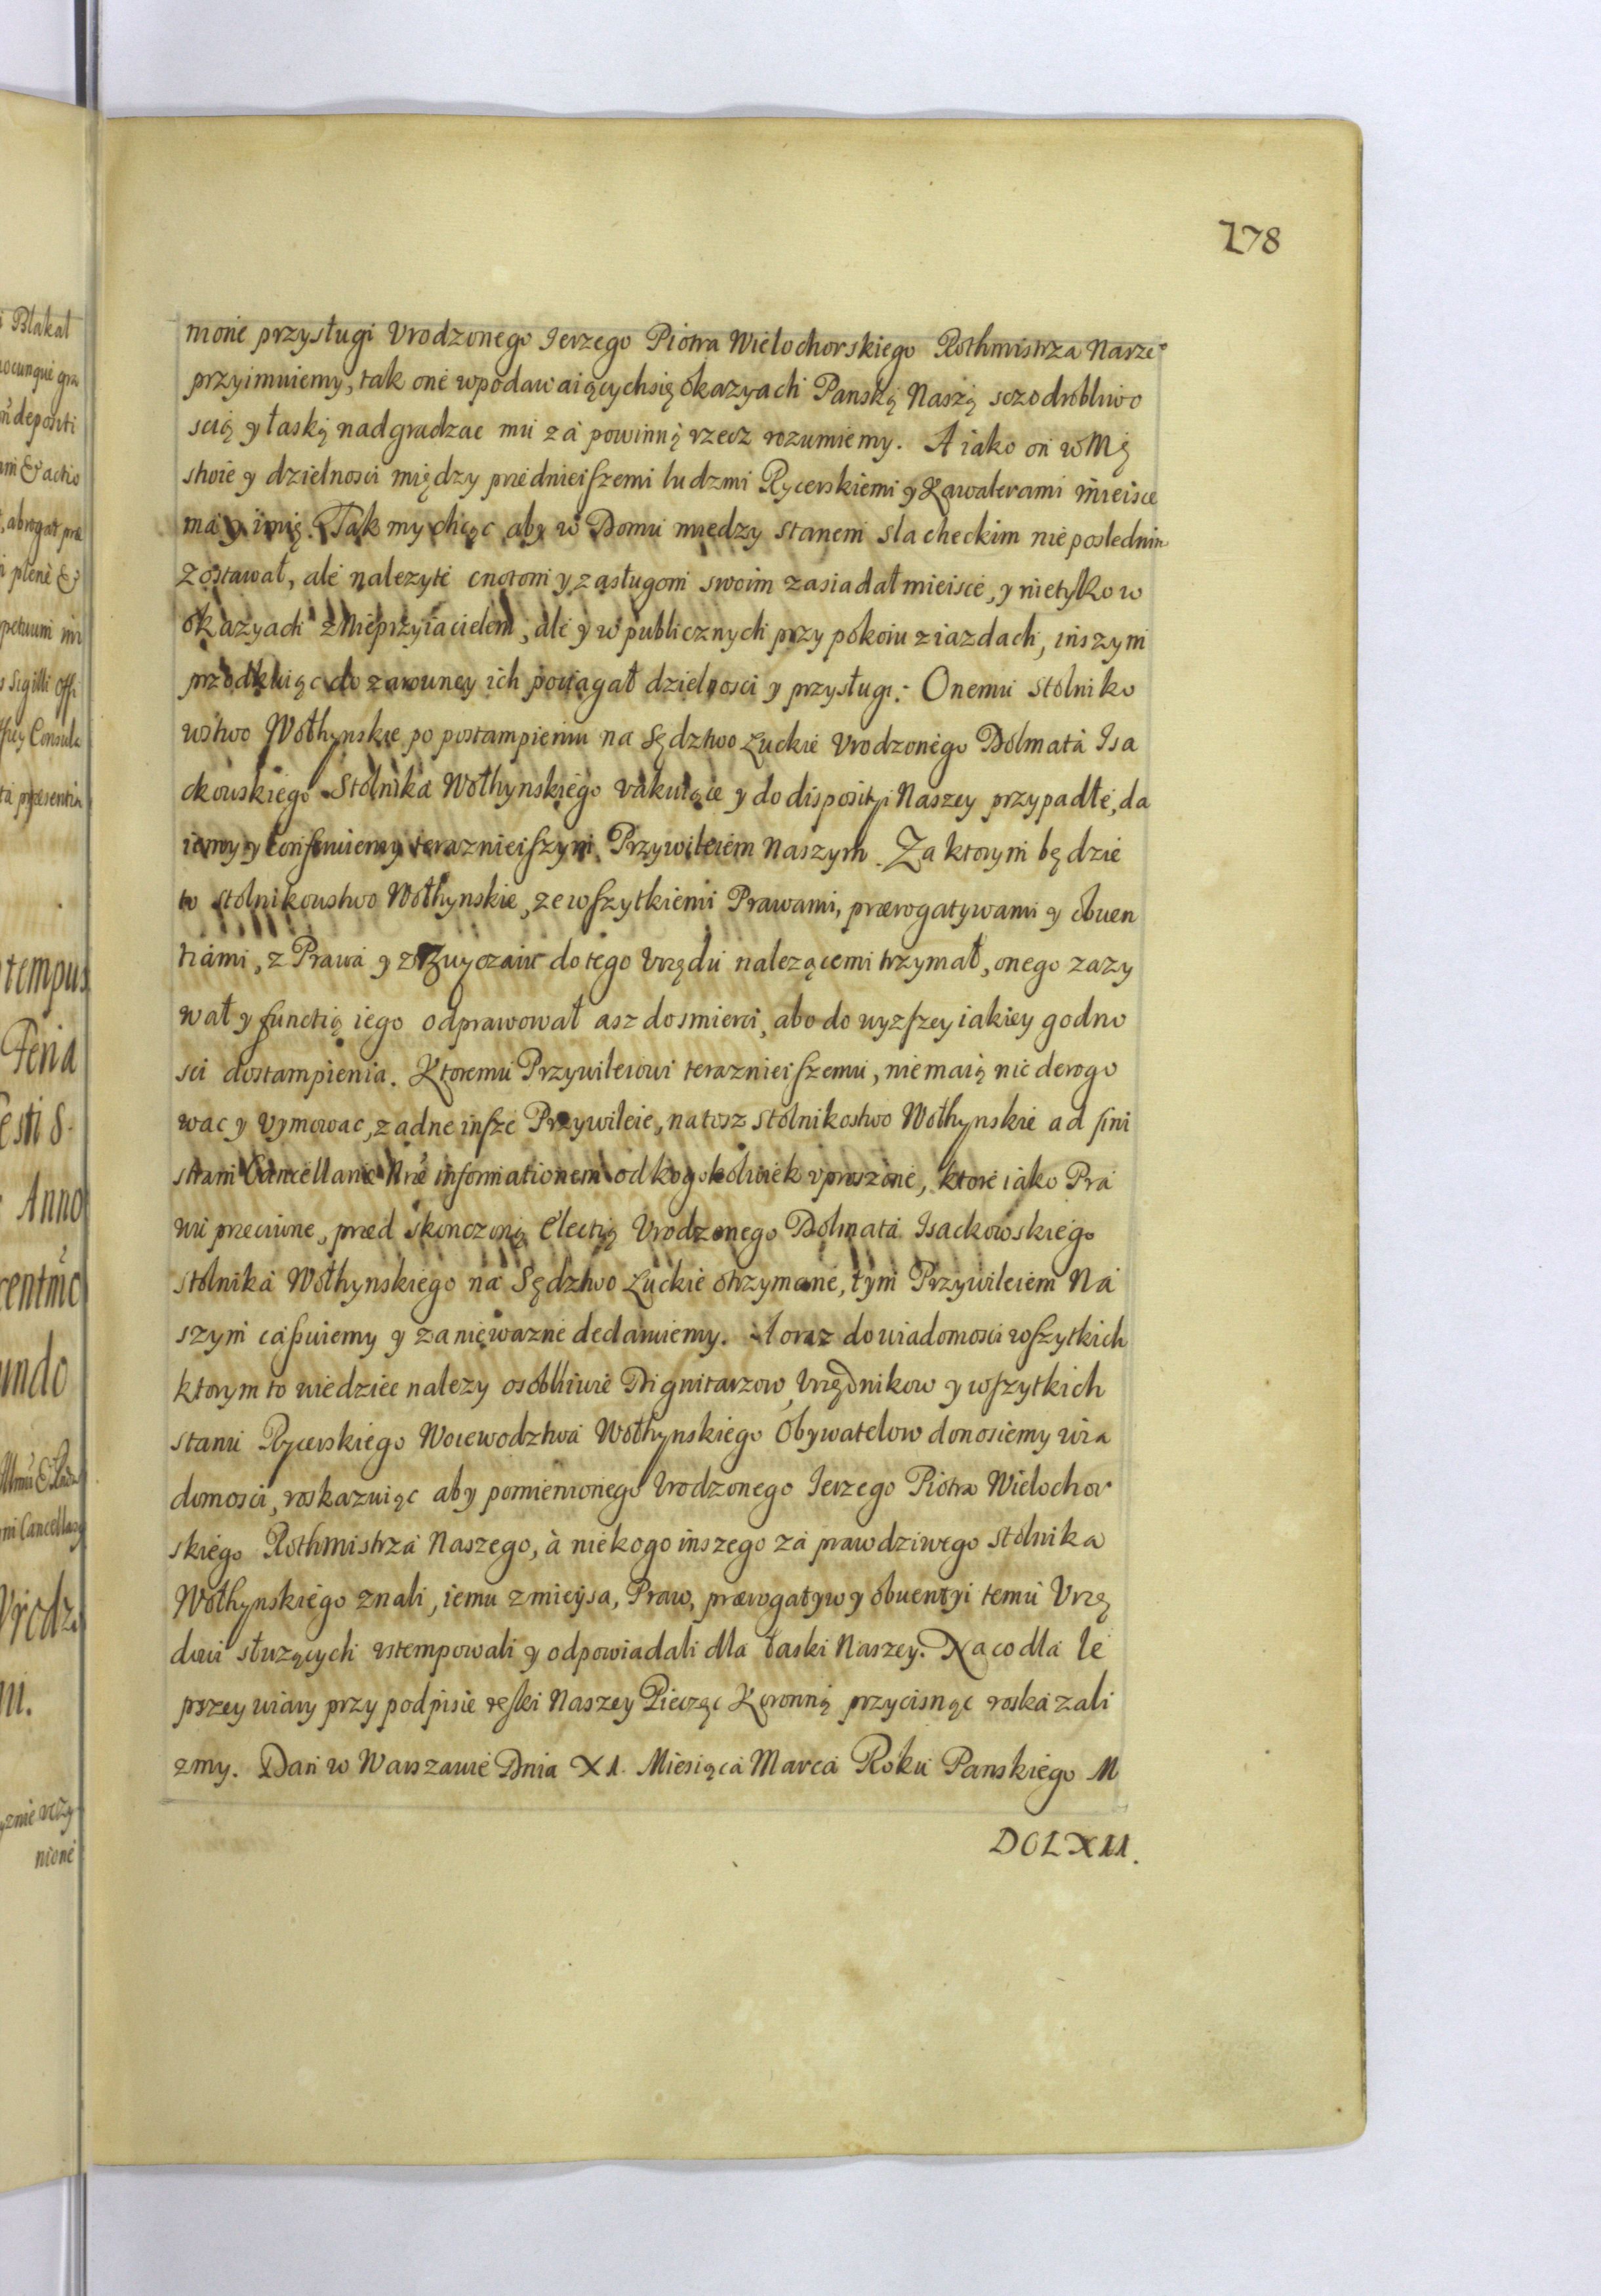 178
nione przysługi Vrodzonego Ierzego Piotra Wielochorskiego Rothmistrza Narze°
przyimuiemy, tak one wpodawaiącychsię okazyach Panską Naszą sczodrobliwo
scią y łaską nadgradzac mu za powinną rzecz rozumiemy. A iako on w Mę
stwie y dzielnosci między przednieiszemi ludzmi Rycerskiemi y Kawalerami mieisce
ma y imię. Tak my chcąc aby w Domu miedzy stanem slacheckim nie poslednim
zostawał, ale nalezyte cnotom y zasługom swoim zasiadał mieisce, y nietylko w
okazyach z Nieprzyiacielem, ale y w publicznych przy pokoiu ziazdach, inszym
przodkuiąc do zarowney ich pociągał dzielnosci y przysługi: Onemu Stolniko
wstwo Wołhynskie po postampieniu na Sędztwo Łuckie Vrodzonego Dolmata Isa
ckowskiego Stolnika Wołhynskiego vakuiące y do disposityi Naszey przypadłe, da
iemy y conferuiemy terazniejszym Przywileiem Naszym. Za ktorym będzie
to stolnikowstwo Wołhynskie, ze wszytkiemi Prawami, prærogatywami y obuen
tiami, z Prawa y z Zwyczaiu do tego Vrzędu nalezącemi trzymał, onego zazy
wał y functią iego odprawował asz do smierci, abo do wyzszey iakiey godno
sci dostampienia. Ktoremu Przywileiowi teraznieiszemu, nie maią nic derogo
wac y vymowac, zadne insze Przywileie, na tosz stolnikostwo Wołhynskie ad sini
stram Cancellariæ Nræ informationem od kogokolwiek vproszone, ktore iako Pra
wu przeciwne, przed skonczoną Electią Vrodzonego Dolmata Isackowskiego
stolnika Wołhynskiego na Sędztwo Łuckie otrzymane, tym Przywileiem Na
szym cassuiemy y za niewazne declaruiemy. A oraz do wiadomosci wszytkich
ktorym to wiedziec nalezy osobliwie Dignitarzow, Vrzędnikow y wszytkich
stanu Rycerskiego Woiewodztwa Wołhynskiego Obywatelow donosiemy wia
domosci, roskazuiąc aby pomienionego Vrodzonego Ierzego Piotra Wielochor
skiego Rothmistrza Naszego, à niekogo inszego za prawdziwego stolnika
Wołhynskiego znali, iemu zmieysa, Praw, prærogatyw y obuentyi temu Vrzę
dowi słuzących vstempowali y odpowiadali dla łaski Naszey. Na co dla le
pszey wiary przy podpisie ręki Naszey Pieczęc Koronną przycisnąc roskazali
zmy. Dan w Warszawie Dnia XI. Miesiąca Marca Roku Panskiego M
DCLXII.